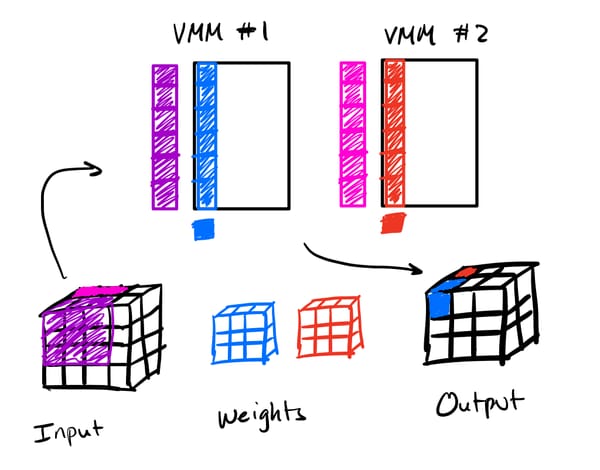 VMM #1
VMM #2
Input
Weights
Output